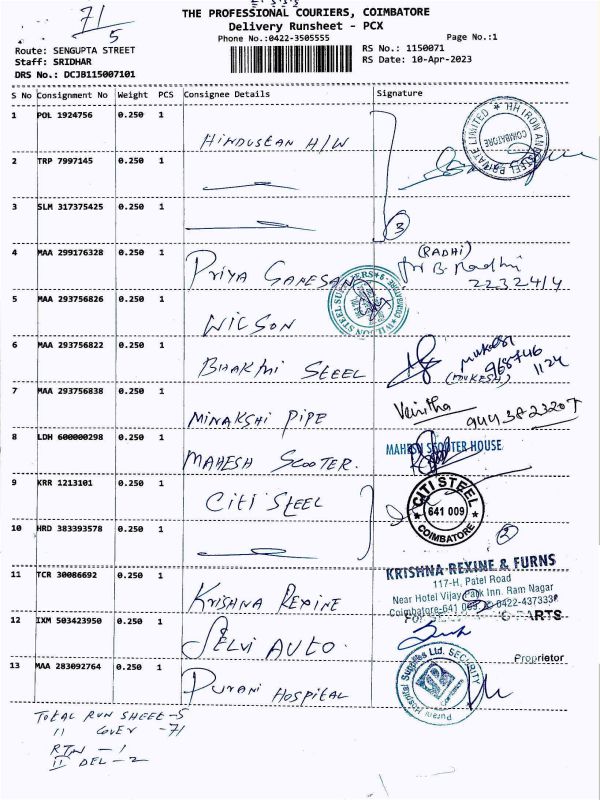 71/5
THE PROFESSIONAL COURIERS, COIMBATORE
Delivery Runsheet - PCX
Phone No.:0422-3505555
Page No.:1
Route: SENGUPTA STREET
RS No.: 1150071
Staff: SRIDHAR
RS Date: 10-Apr-2023
DRS No.: DCJB115007101
S No Consignment No Weight PCS Consignee Details Signature
1 POL 1924756 0.250 1 HINDUSTAN H/W
HH IRON AND STEEL PRIVATE LIMITED * COIMBATORE
2 TRP 7997145 0.250 1
3 SLM 317375425 0.250 1
3
4 MAA 299176328 0.250 1 PRIYA GANESAN
(RADHI)
B. Radhi
2232414
5 MAA 293756826 0.250 1 WILSON
WILSON STEEL SUPPLIERS
6 MAA 293756822 0.250 1 BHAKTHI STEEL
(MUKESH)
1124
7 MAA 293756838 0.250 1 MINAKSHI PIPE
9443823207
8 LDH 600000298 0.250 1 MAHESH SCOOTER.
MAHESH SCOOTER HOUSE
9 KRR 1213101 0.250 1 CITI STEEL
CITI STEEL
641 009
COIMBATORE
10 HRD 383393578 0.250 1
2
11 TCR 30086692 0.250 1 KRISHNA REXINE
KRISHNA REXINE & FURNS
117-H, Patel Road
Near Hotel Vijay Park Inn. Ram Nagar
Coimbatore-641 009 0422-437333
12 IXM 503423950 0.250 1 SELVI AUTO.
PARTS
Proprietor
13 MAA 283092764 0.250 1 PURANI HOSPITAL
Purani Hospital Supplies Ltd. SECURITY
TOTAL RUN SHEET -5
11 COVER -71
RTN -1
11 DEL -2